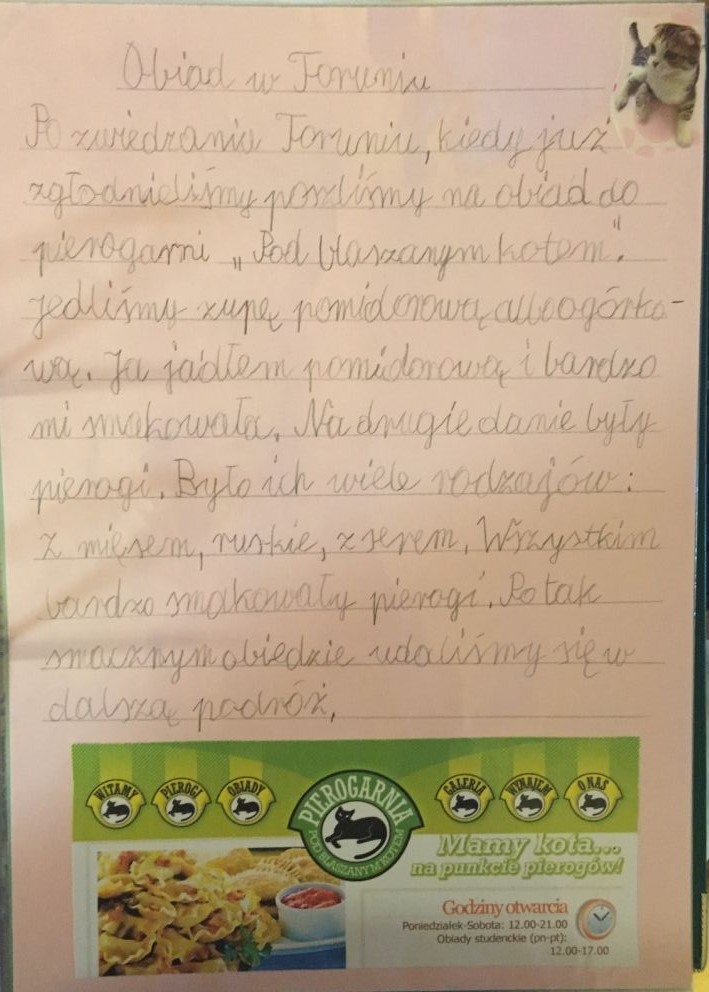 Obiad w Toruniu
Po zwiedzaniu Toruniu, kiedy już
zgłodnieliśmy poszliśmy na obiad do
pierogarni „Pod blaszanym kotem".
Jedliśmy zupę pomidorową albo ogórko-
wą. Ja jadłem pomidorową i bardzo
mi smakowała. Na drugie danie były
pierogi. Było ich wiele rodzajów:
z mięsem, ruskie, z serem. Wszystkim
bardzo smakowały pierogi. Po tak
smacznym obiedzie udaliśmy się w
dalszą podróż.
WITAMY PIEROGI OBIADY
PIEROGARNIA
POD BLASZANYM KOTEM
GALERIA WYNAJEM O NAS
Mamy kota...
na punkcie pierogów!
Godziny otwarcia
Poniedziałek-Sobota: 12.00-21.00
Obiady studenckie (pn-pt):
12.00-17.00